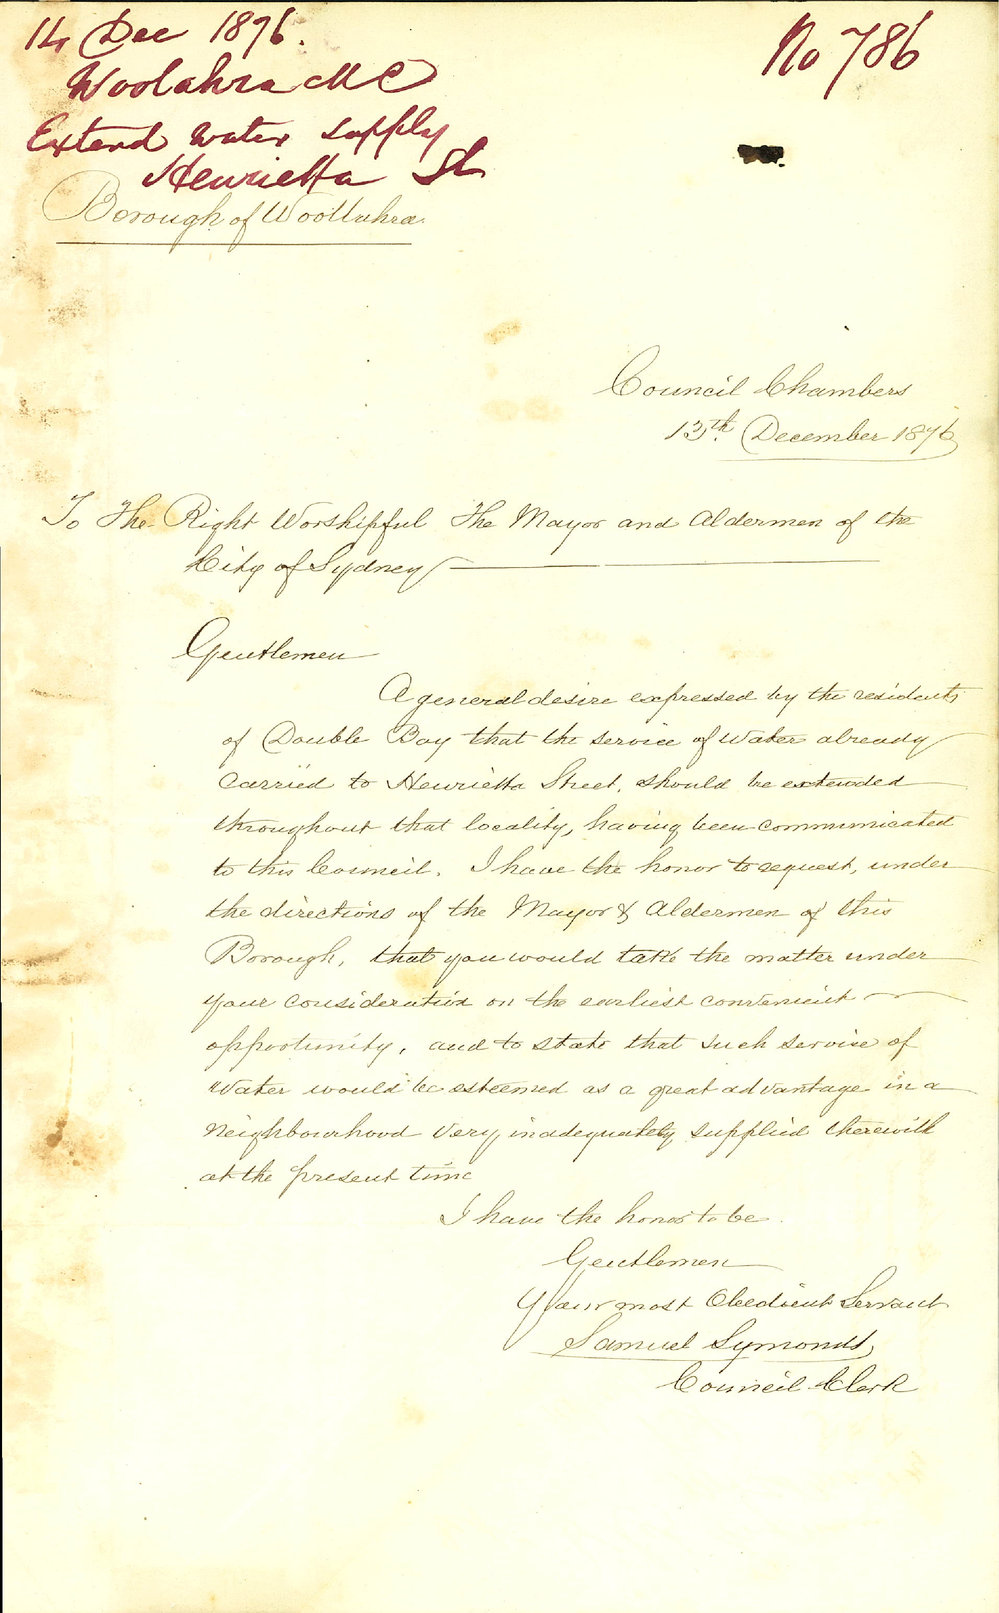 14 Dec 1876.
No 786
Woolahra M C
Extend water supply
Henrietta St
Borough of Woollahra
Council Chambers
13th. December 1876
To The Right Worshipful The Mayor and Aldermen of the
City of Sydney
Gentlemen
A general desire expressed by the residents
of Double Bay that the service of Water already
carried to Henrietta Street, should be extended
throughout that locality, having been communicated
to this Council. I have the honor to request, under
the directions of the Mayor & Aldermen of this
Borough, that you would take the matter under
your consideration on the earliest convenient
opportunity, and to state that such service of
Water would be esteemed as a great advantage in a
Neighbourhood very inadequately supplied therewith
at the present time
I have the honor to be
Gentlemen
Your most Obedient Servant
Samuel Symonds,
Council Clerk